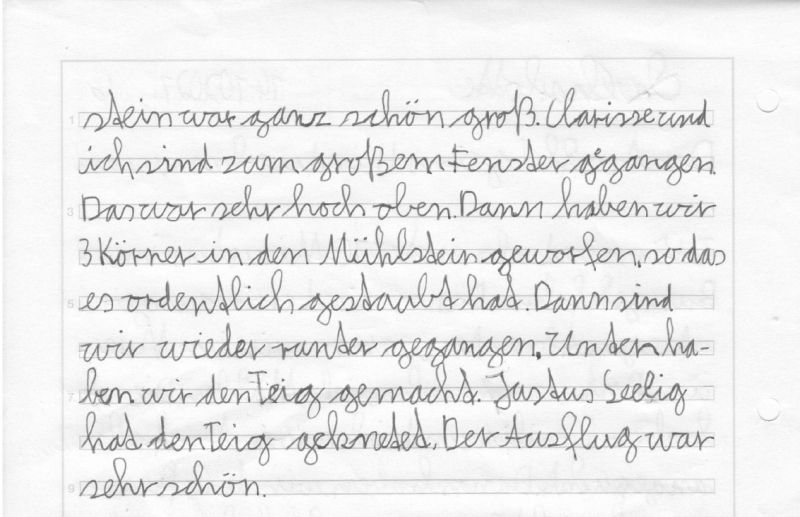 stein war ganz schön groß. Clarisse und
ich sind zum großem Fenster gegangen.
Das war sehr hoch oben. Dann haben wir
3 Körner in den Mühlstein geworfen, so das
es ordentlich gestaubt hat. Dann sind
wir wieder runter gegangen. Unten ha-
ben wir den Teig gemacht. Justus Seelig
hat den Teig geknetet. Der Ausflug war
sehr schön.